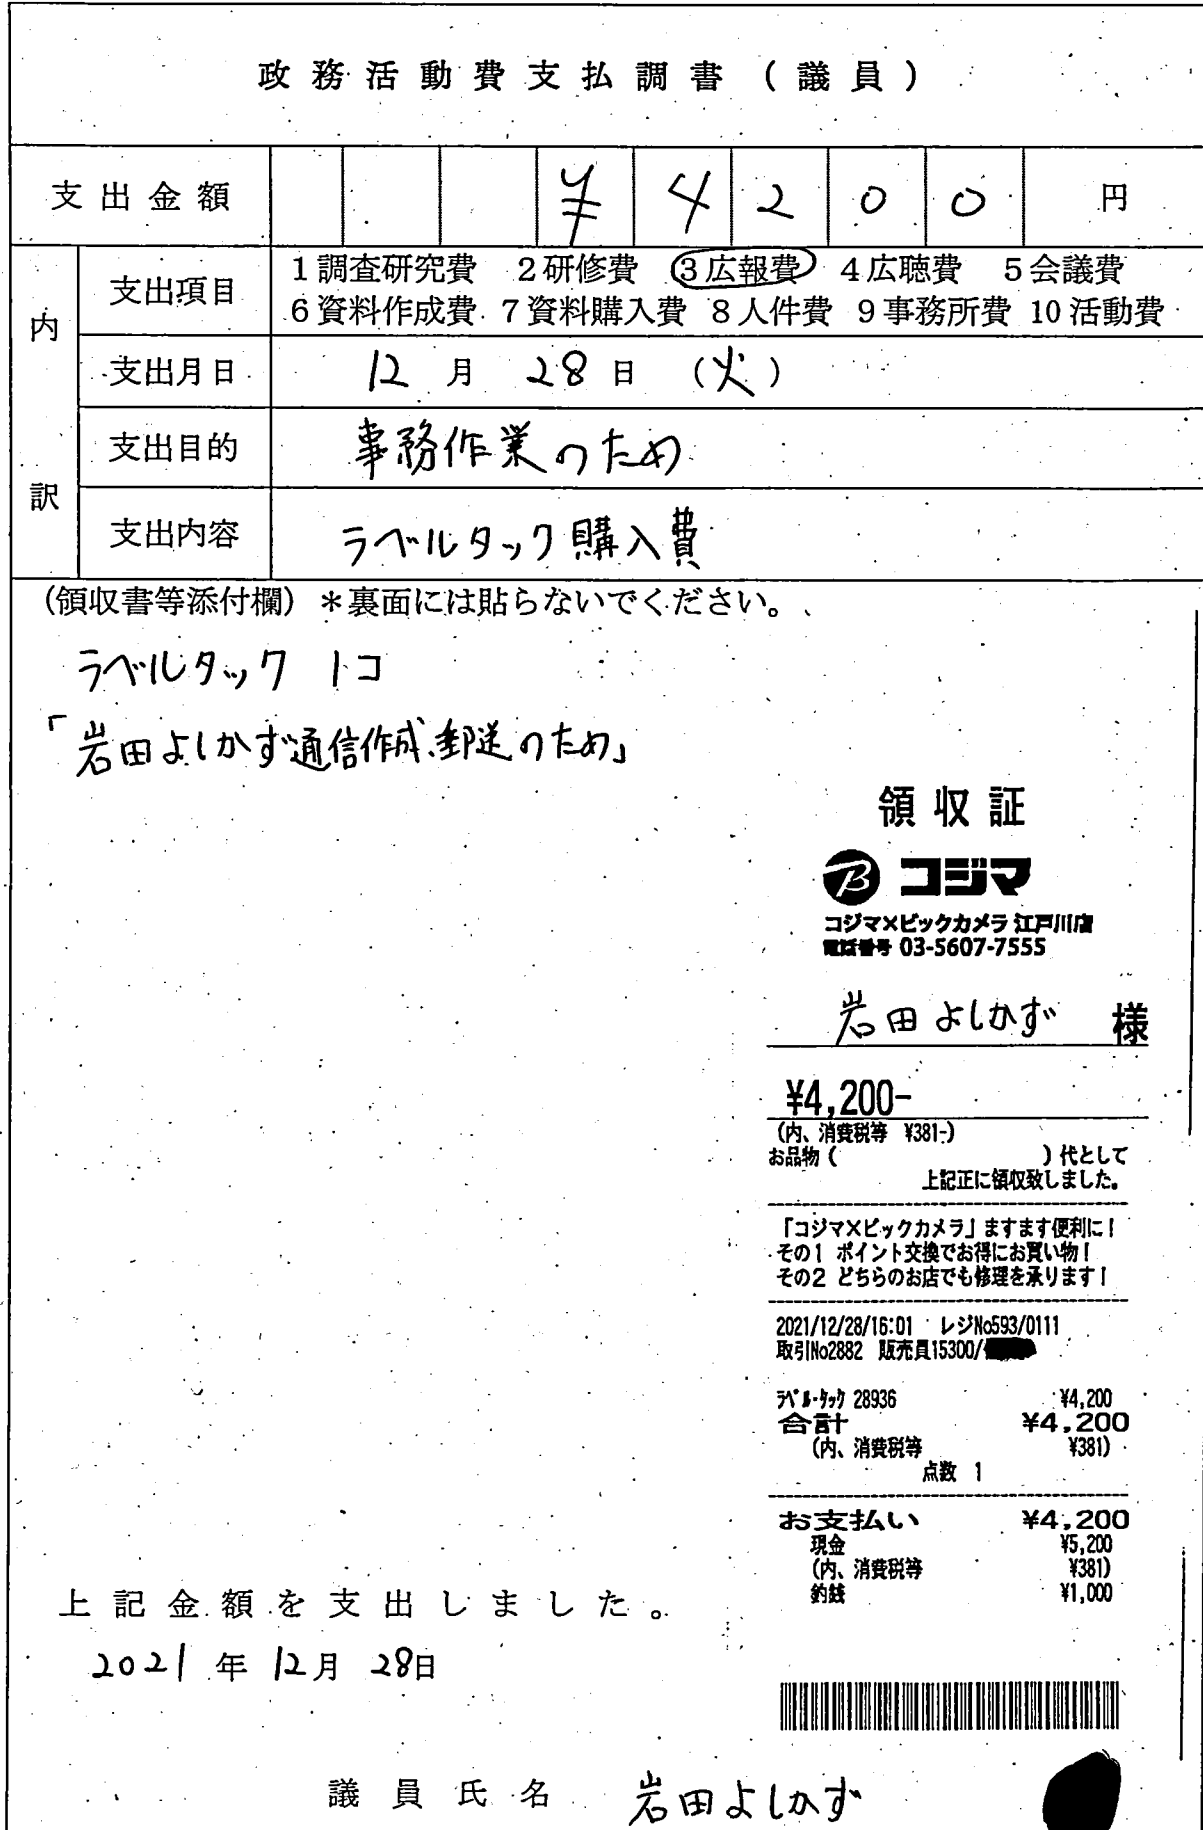 政務活動費支払調書（議員）
支出金額 ¥4200円
内訳
支出項目 1調査研究費 2研修費 3広報費 4広聴費 5会議費
6資料作成費 7資料購入費 8人件費 9事務所費 10活動費
支出月日 12月28日（火）
支出目的 事務作業のため
支出内容 ラベルタック購入費
（領収書等添付欄）＊裏面には貼らないでください。
ラベルタック 1コ
「岩田よしかず通信作成、郵送のため」
領収証
コジマ
コジマ×ビックカメラ 江戸川店
電話番号 03-5607-7555
岩田よしかず 様
¥4,200-
(内、消費税等 ¥381-)
お品物( )代として
上記正に領収致しました。
「コジマ×ビックカメラ」ますます便利に！
その1 ポイント交換でお得にお買い物！
その2 どちらのお店でも修理を承ります！
2021/12/28/16:01 レジNo593/0111
取引No2882 販売員15300/
ﾗﾍﾞﾙ･ﾀｯｸ 28936 ¥4,200
合計 ¥4,200
(内、消費税等 ¥381)
点数 1
お支払い ¥4,200
現金 ¥5,200
(内、消費税等 ¥381)
釣銭 ¥1,000
上記金額を支出しました。
2021年12月28日
議員氏名 岩田よしかず